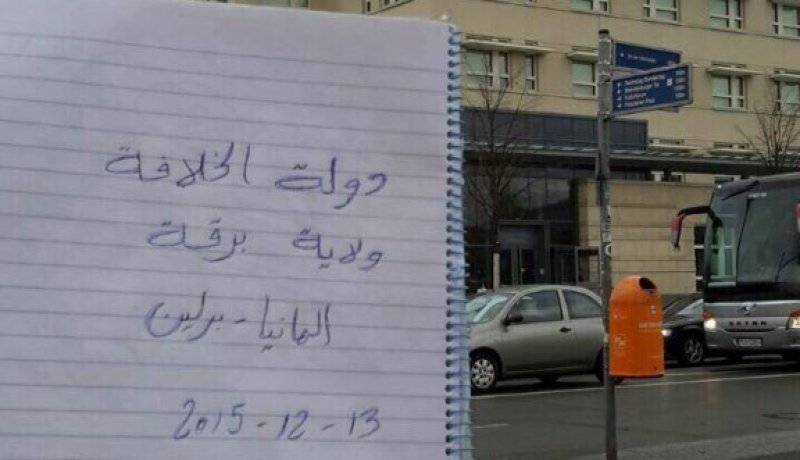 دولة الخلافة
ولاية برقة
المانيا - برلين
2015 - 12 - 13
SETRA